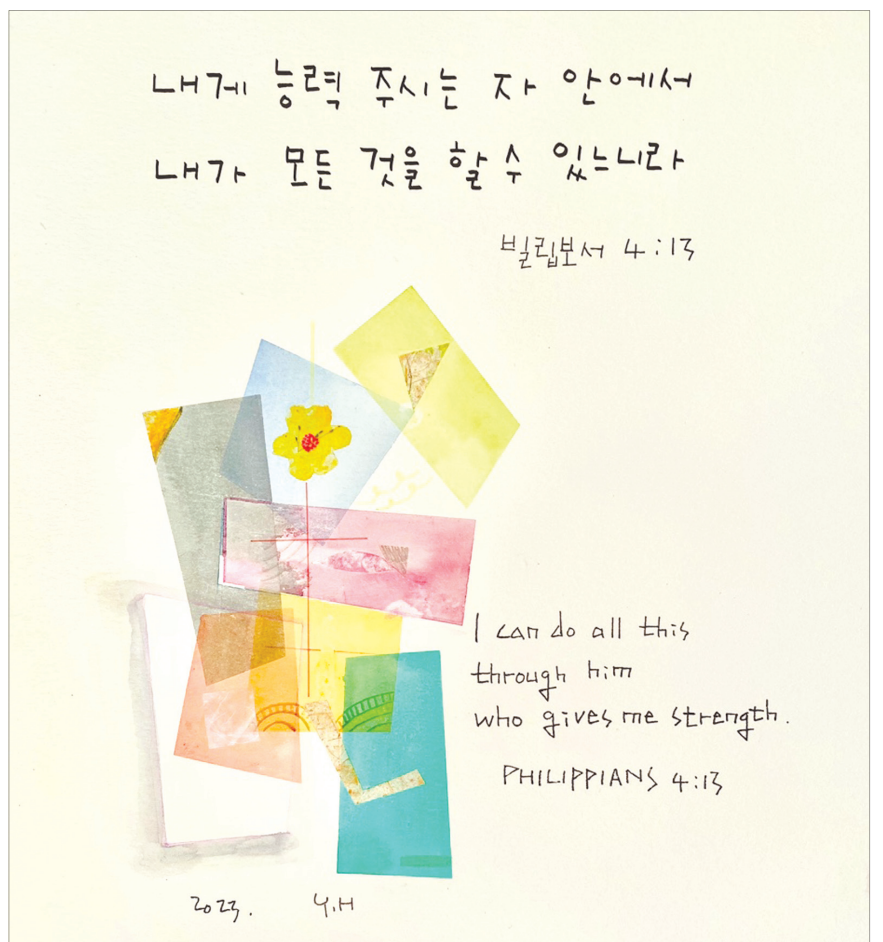 내게 능력 주시는 자 안에서
내가 모든 것을 할 수 있느니라
빌립보서 4:13
I can do all this
through him
who gives me strength.
PHILIPPIANS 4:13
2023. Y.H